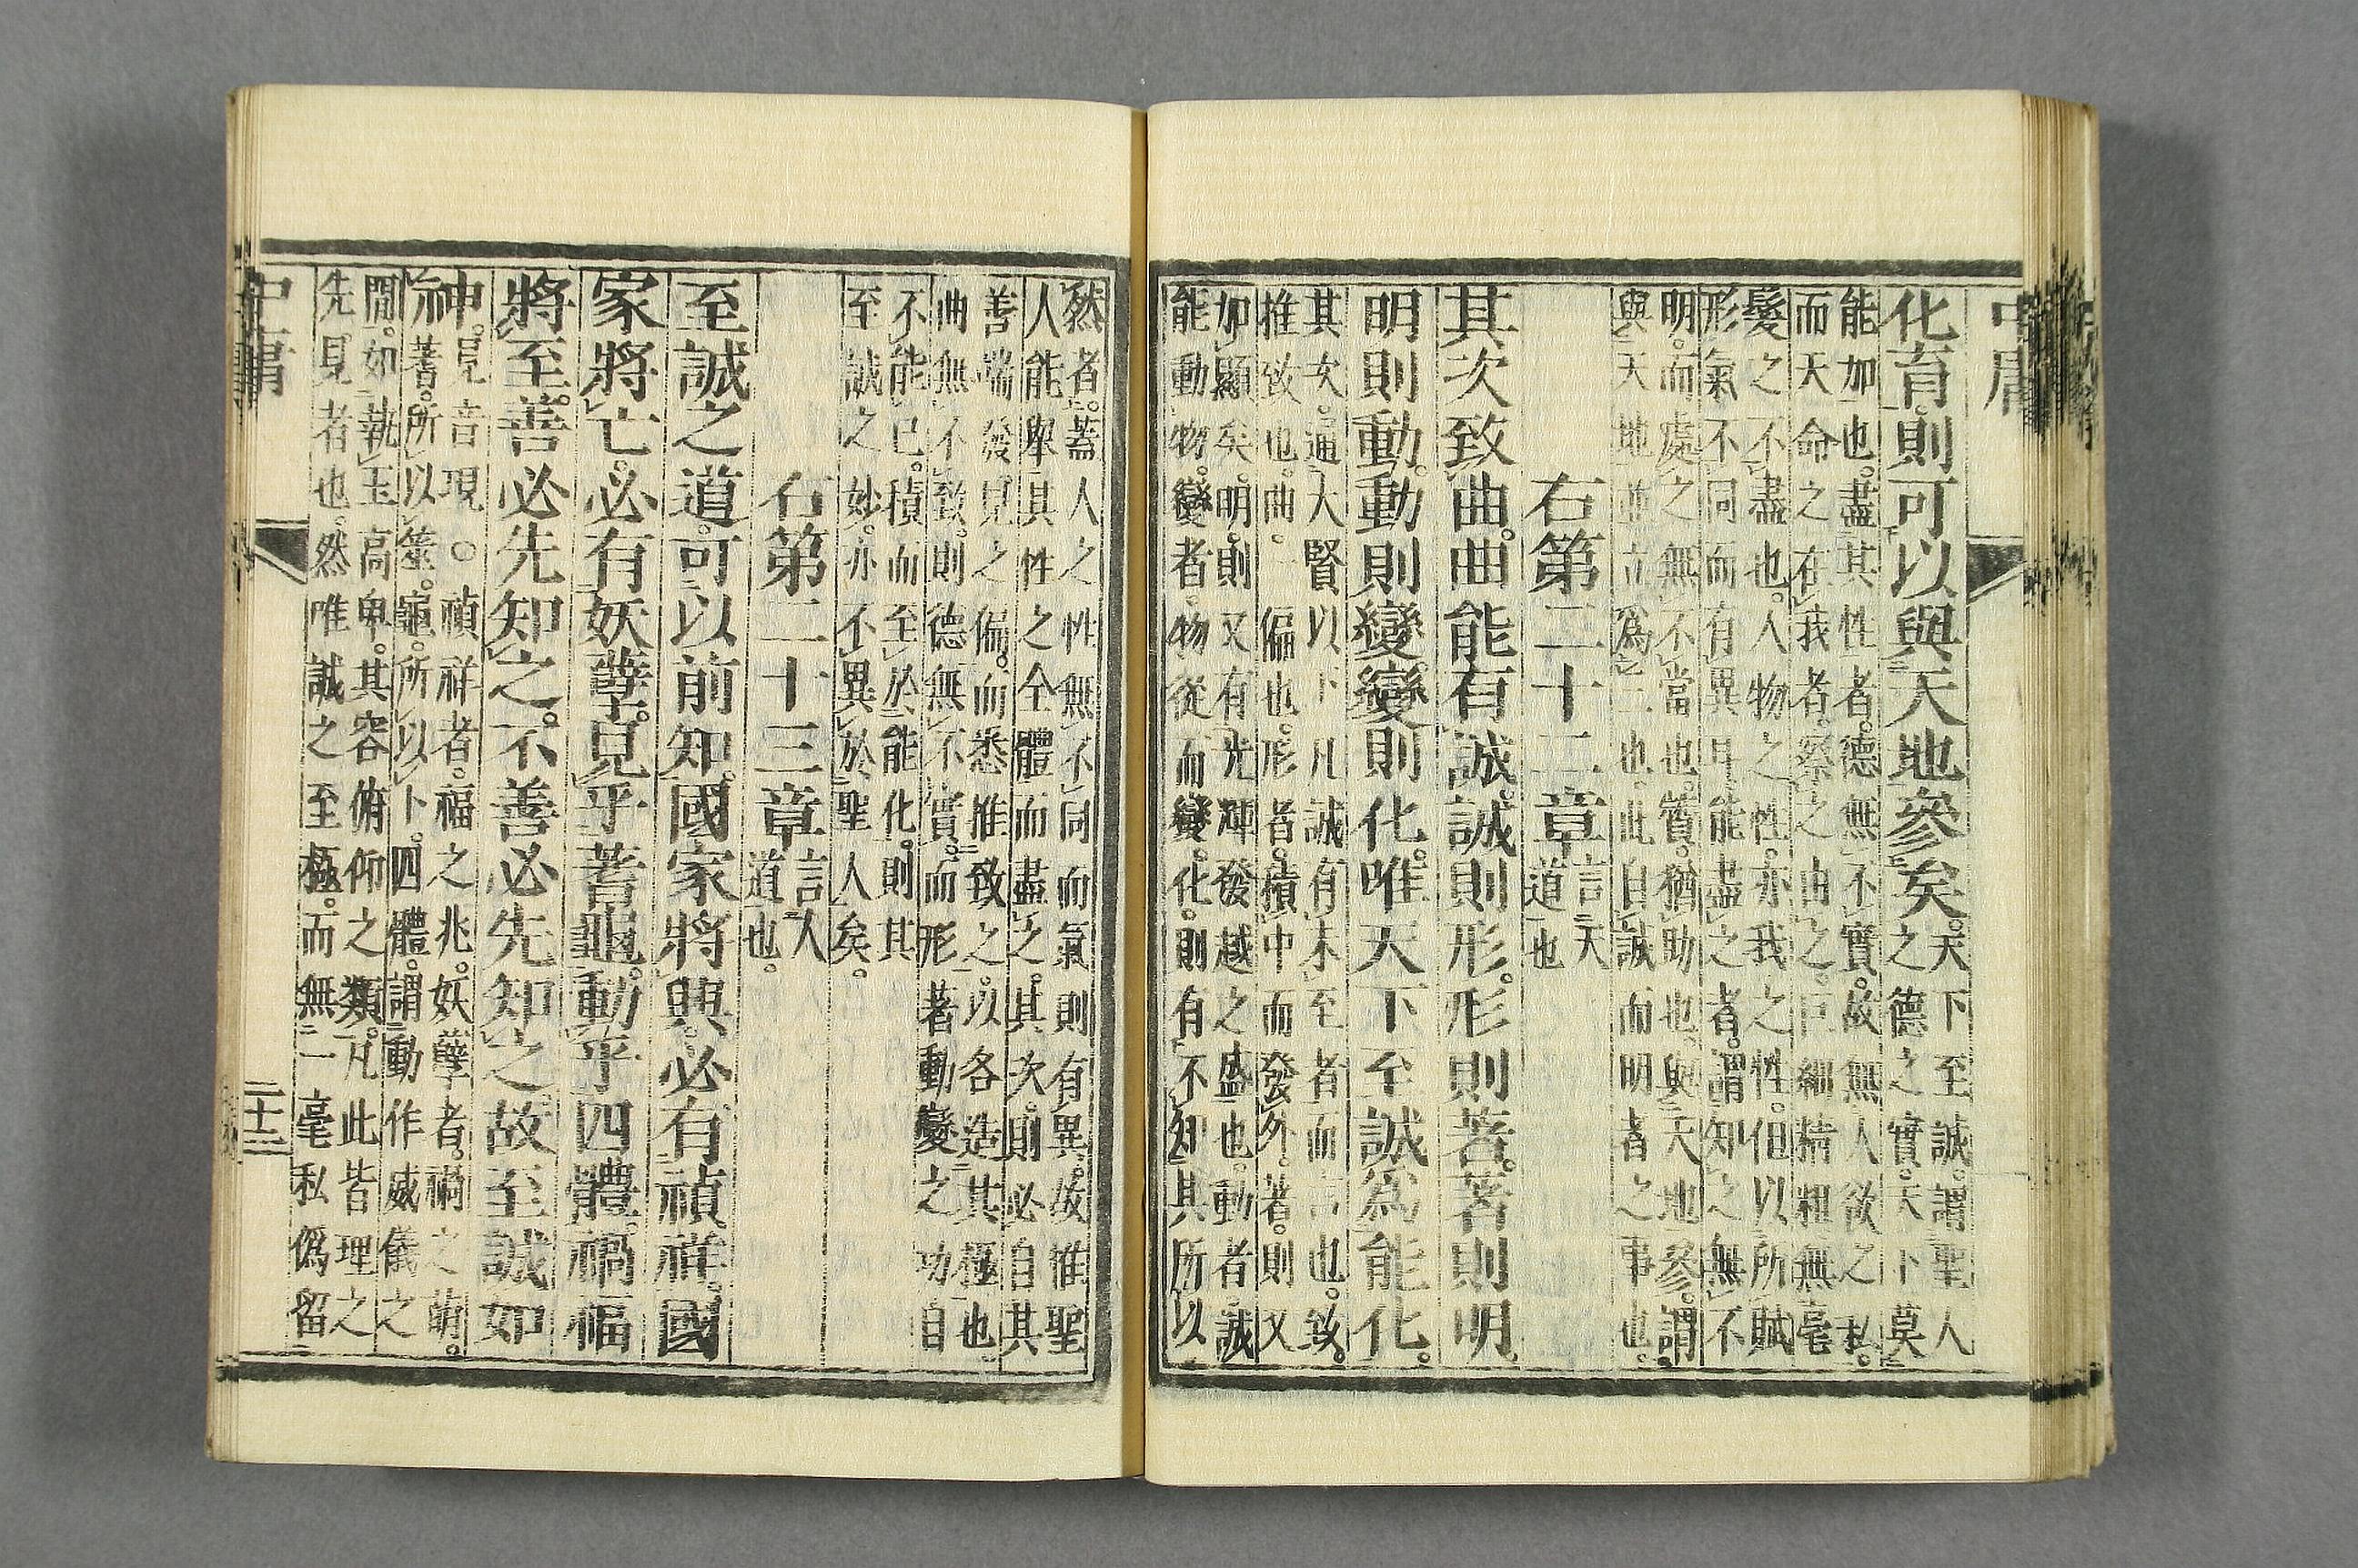 中庸
化育則可以與天地參矣天下至誠謂聖人
之德之實天下莫
能加也盡其性者德無不實故無人欲之私
而天命之在我者察之由之巨細精粗無毫
髮之不盡也人物之性亦我之性但以所賦
形氣不同而有異耳能盡之者謂知之無不
明而處之無不當也贊猶助也與天地參謂
與天地並立爲三也此自誠而明者之事也
右第二十二章言天
道也
其次致曲曲能有誠誠則形形則著著則明
明則動動則變變則化唯天下至誠爲能化
其次通大賢以下凡誠有未至者而言也致
推致也曲一偏也形者積中而發外著則又
加顯矣明則又有光輝發越之盛也動者誠
能動物變者物從而變化則有不知其所以
然者蓋人之性無不同而氣則有異故惟聖
人能舉其性之全體而盡之其次則必自其
善端發見之偏而悉推致之以各造其極也
曲無不致則德無不實而形著動變之功自
不能已積而至於能化則其
至誠之妙亦不異於聖人矣
右第二十三章言人
道也
至誠之道可以前知國家將興必有禎祥國
家將亡必有妖孽見乎蓍龜動乎四體禍福
將至善必先知之不善必先知之故至誠如
神見音現○禎祥者福之兆妖孽者禍之萌
蓍所以筮龜所以卜四體謂動作威儀之
間如執玉高卑其容俯仰之類凡此皆理之
先見者也然唯誠之至極而無一毫私僞留
中庸
二十二